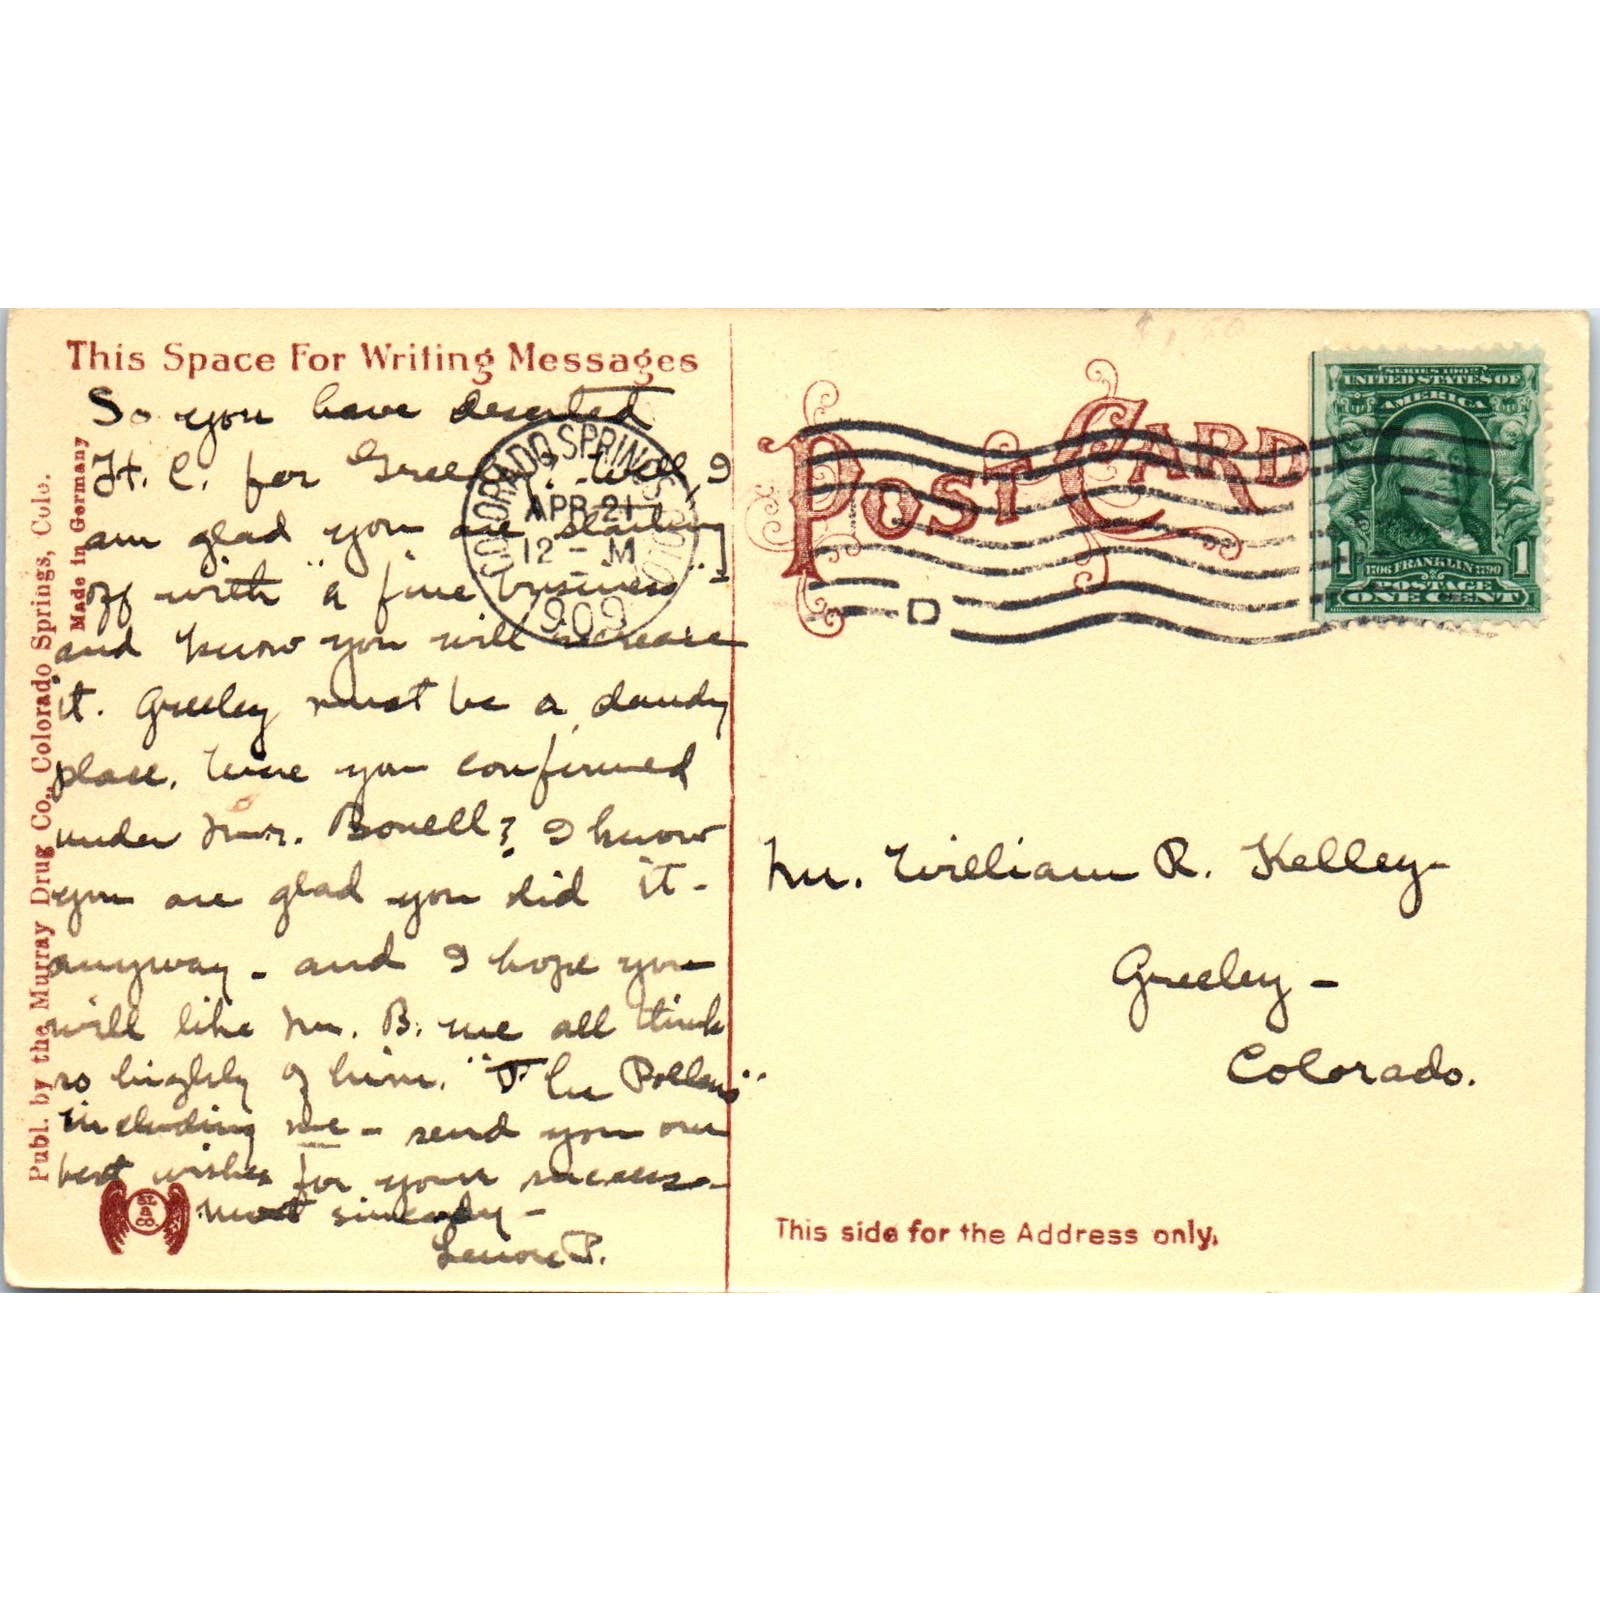 This Space For Writing Messages
So you have deserted
Ft. C. for Greeley? Well, I
am glad you are starting
off with "a fine business"
and know you will increase
it. Greeley must be a dandy
place. Were you confirmed
under Mr. Bonell? I know
you are glad you did it -
anyway - and I hope you
will like Mr. B. we all think
so highly of him. "The Pollens"
including me - send you our
best wishes for your success -
most sincerely -
Lenore P.
Publ. by the Murray Drug Co., Colorado Springs, Colo.
Made in Germany
COLORADO SPRINGS COLO.
APR 21
12 - M
1909
POST CARD
SERIES 1902
UNITED STATES OF
AMERICA
1706 FRANKLIN 1790
1 1
POSTAGE
ONE CENT
Mr. William R. Kelley -
Greeley -
Colorado.
This side for the Address only.